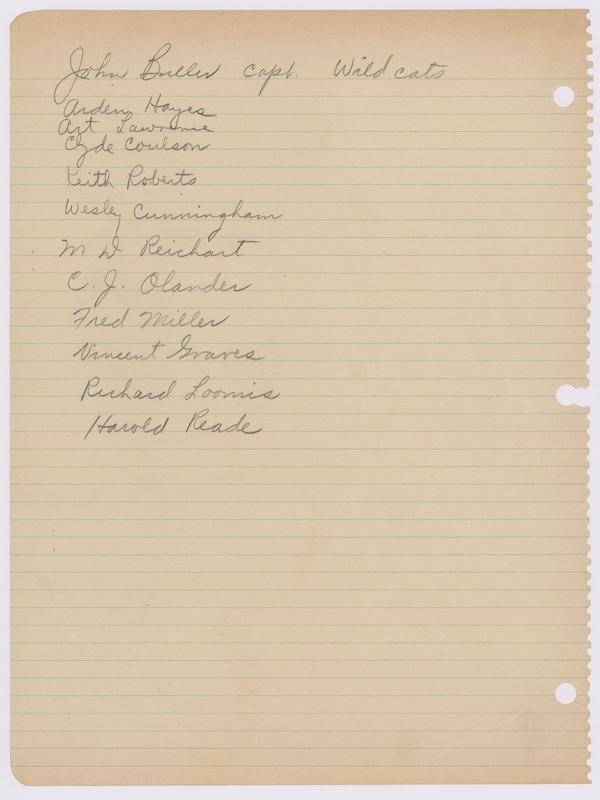 John Buller capt. Wild cats
Arden Hayes
Art Lawrence
Clyde Coulson
Keith Roberts
Wesley Cunningham
M W Reichart
C. J. Olander
Fred Miller
Vincent Graves
Richard Loomis
Harold Reade